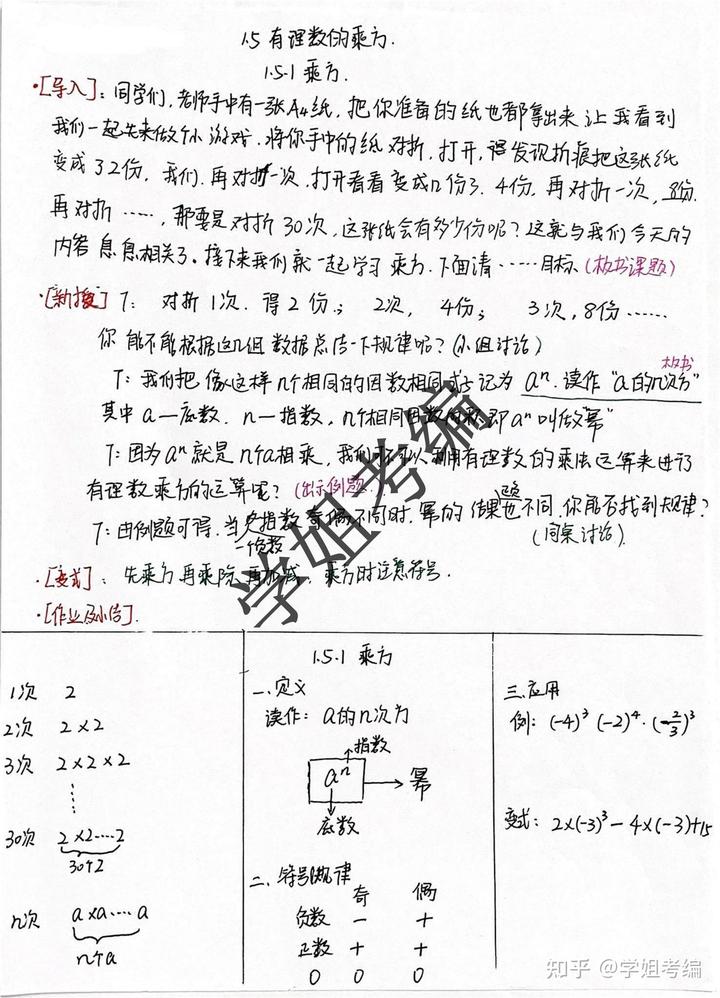 1.5 有理数的乘方.
1.5.1 乘方.
·[导入]: 同学们, 老师手中有一张A4纸, 把你准备的纸也都拿出来让我看到
我们一起先来做个小游戏. 将你手中的纸对折, 打开, 发现折痕把这张纸
变成了2份, 我们再对折一次, 打开看看变成几份了. 4份, 再对折一次, 8份.
再对折……, 那要是对折30次, 这张纸会有多少份呢? 这就与我们今天的
内容息息相关了. 接下来我们就一起学习乘方. 下面请……目标. (板书课题)
·[新授] T: 对折1次. 得2份; 2次, 4份; 3次, 8份……
你能不能根据这几组数据总结一下规律呢? (小组讨论)
板书
T: 我们把像这样n个相同的因数相同 记为 aⁿ. 读作 "a的n次方"
其中a—底数. n—指数, n个相同因数的积即aⁿ叫做"幂"
T: 因为aⁿ就是n个a相乘, 我们可不可以利用有理数的乘法运算来进行
有理数乘方的运算呢? (出示例题.)
T: 由例题可得, 当 指数奇偶不同时, 幂的结果也不同, 你能否找到规律?
负数 (同桌讨论)
·[变式]: 先乘方再乘除再加减, 乘方时注意符号.
·[作业及小结].
学姐考编
1次 2
2次 2×2
3次 2×2×2
⋮
30次 2×2……2
30个2
n次 a×a……a
n个a
1.5.1 乘方
一、定义
读作: a的n次方
指数
aⁿ → 幂
底数
二、符号规律
奇 偶
负数 − +
正数 + +
0 0 0
三.应用
例: (-4)³ (-2)⁴. (-2/3)³
变式: 2×(-3)³-4×(-3)+15
知乎 @学姐考编